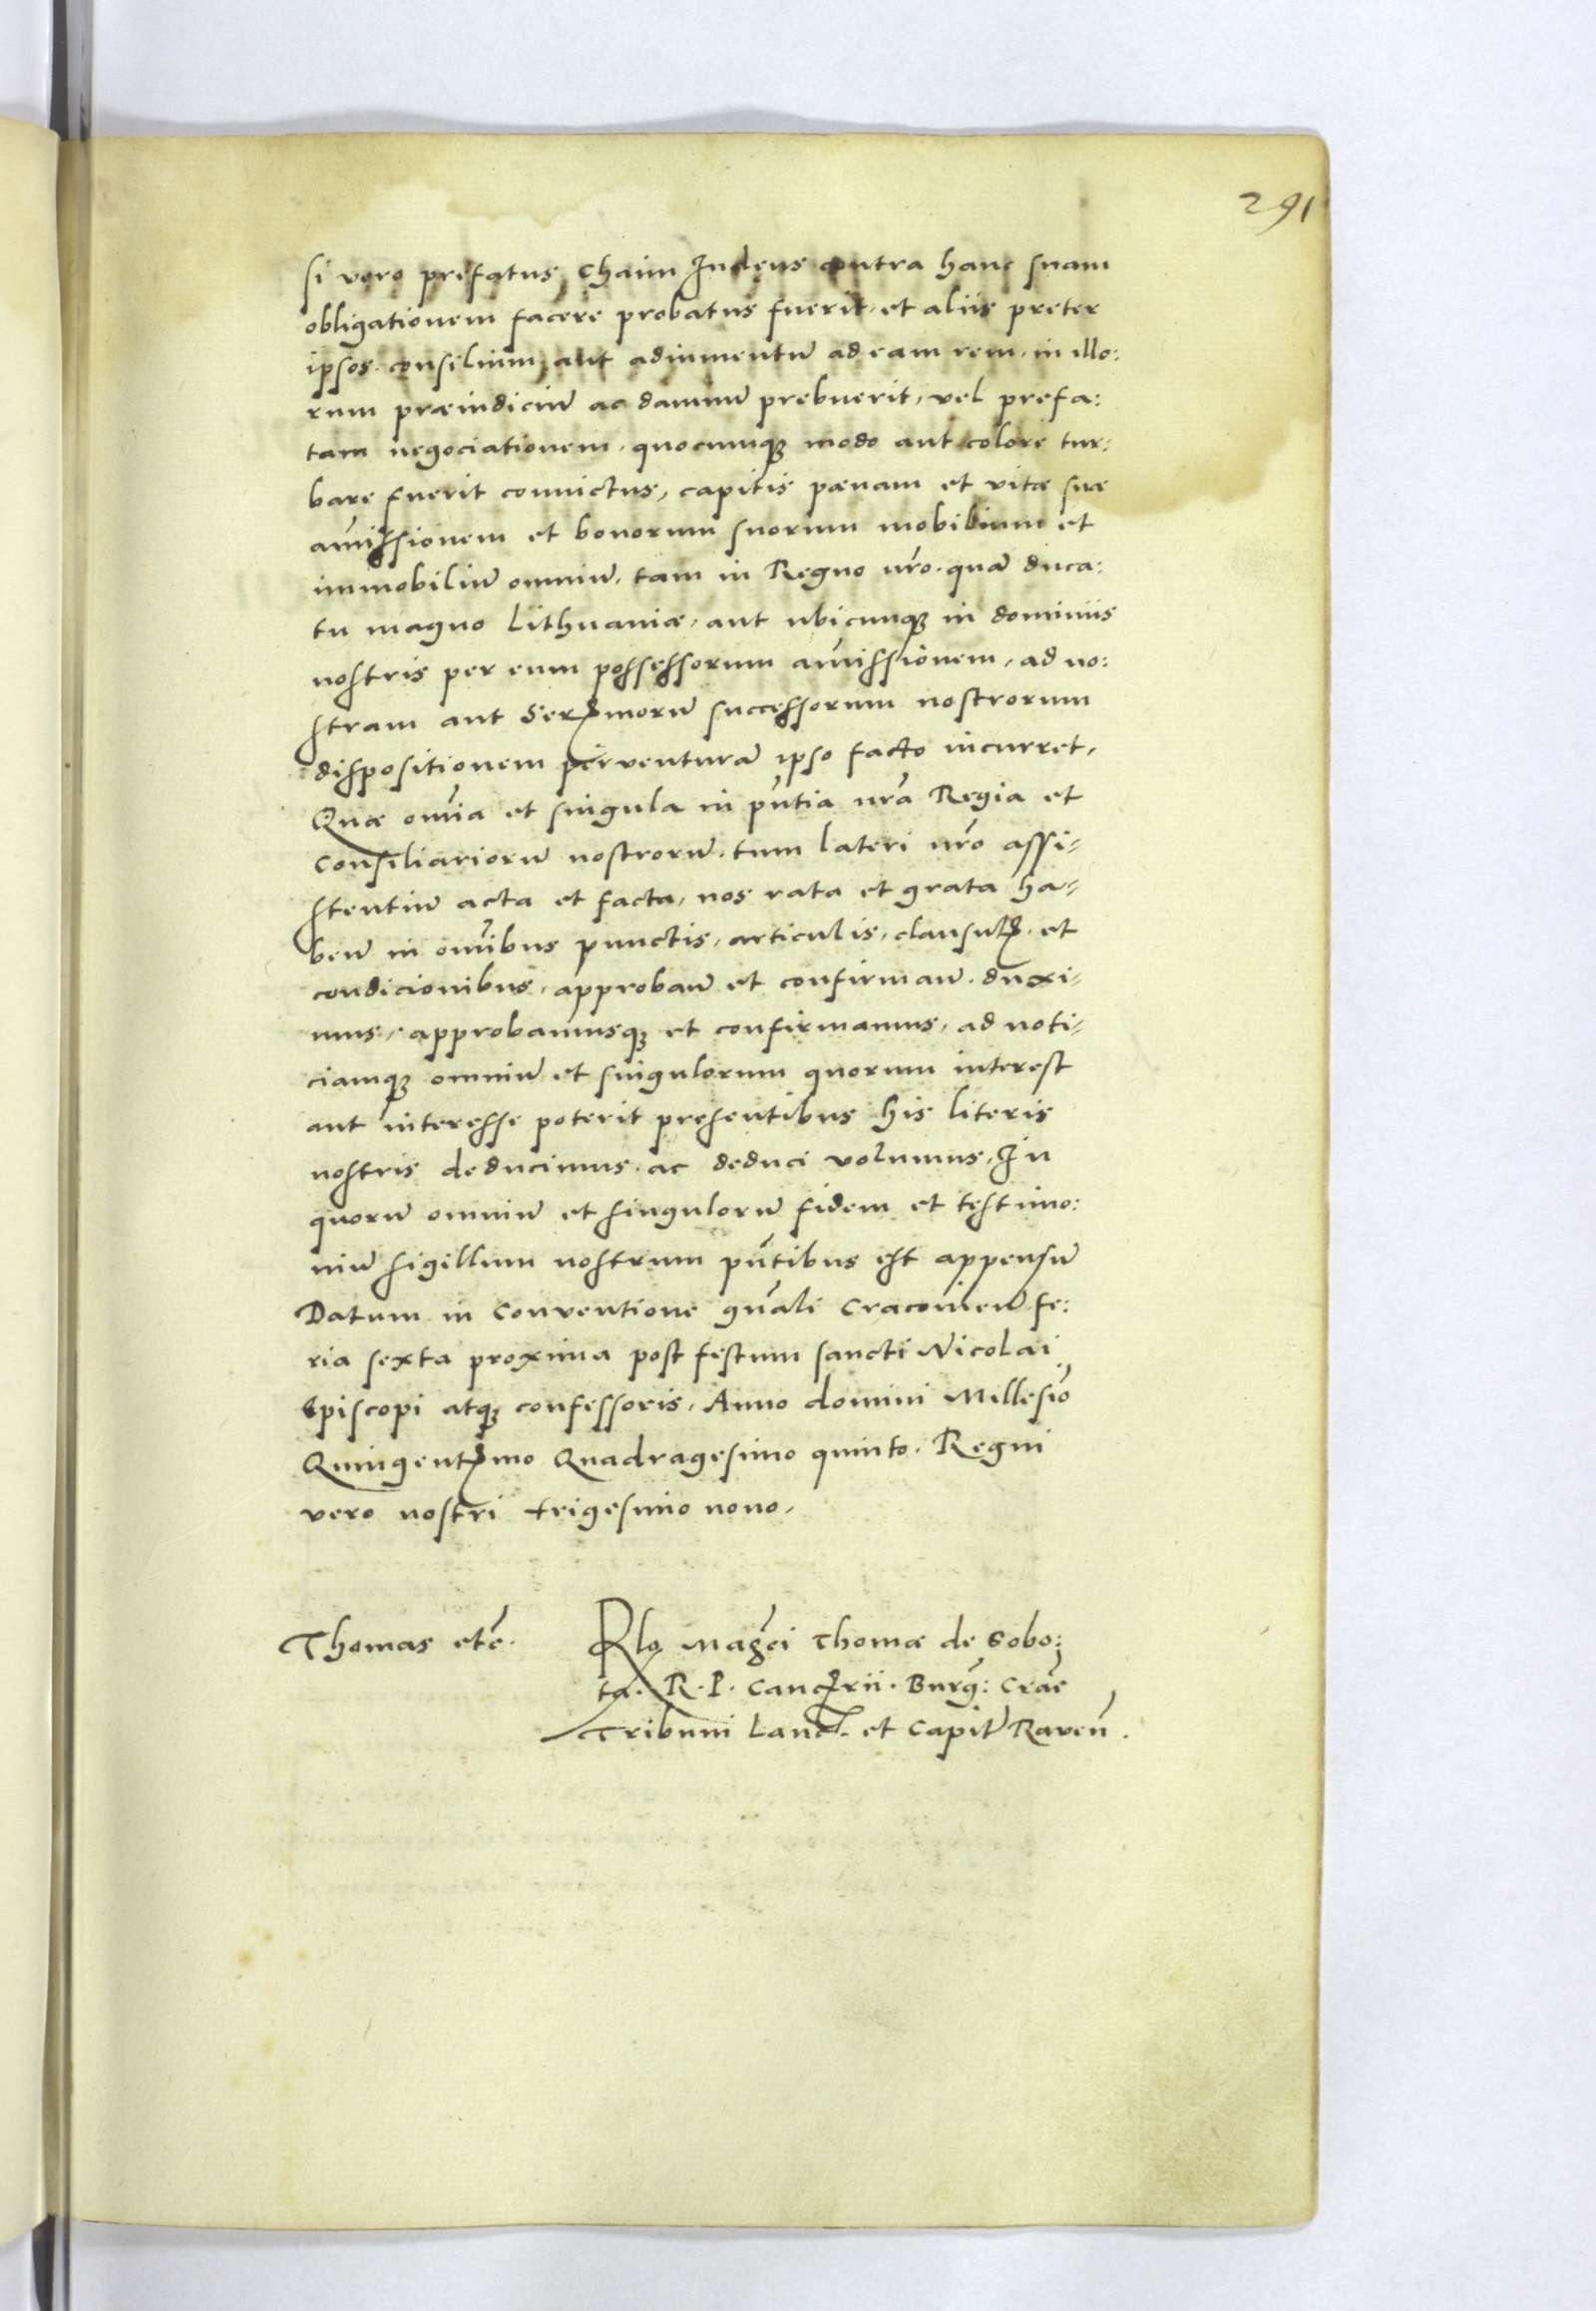 291
si vero prefatus Chaim Iudeus contra hanc suam
obligationem facere probatus fuerit, et aliis preter
ipsos consilium aut adiumentũ ad eam rem, in illo:
rum præiudiciũ ac damnũ prebuerit, vel prefa:
tam negociationem, quocunq; modo aut colore tur:
bare fuerit convictus, capitis pænam et vitæ suæ
amissionem et bonorum suorum mobilium et
immobiliũ omniũ, tam in Regno nr̃o, quã duca:
tu magno Lithuaniæ, aut ubicunq; in dominiis
nostris per eum possessorum amissionem, ad no:
stram aut Serꝫmorũ successorum nostrorum
dispositionem perventurã ipso facto incurret,
Quæ om̃ia et singula in pñtia nr̃a Regia et
consiliariorũ nostrorũ, tum lateri nr̃o assi-
stentiũ acta et facta, nos rata et grata ha-
beñ in om̃ibus punctis, articulis, clausulꝫ, et
condicionibus, approbañ et confirmañ. duxi-
mus, approbamusq; et confirmamus, ad noti-
ciamq; omniũ et singulorum quorum interest
aut interesse poterit presentibus his literis
nostris deducimus ac deduci volumus, In
quorũ omniũ et singulorũ fidem et testimo:
niũ sigillum nostrum pñtibus est appensũ
Datum in Conventione gñali Cracovieñ fe:
ria sexta proxima post festum sancti Nicolai
Episcopi atq; confessoris, Anno domini Millesiõ
Quingentꝫmo Quadragesimo quinto. Regni
vero nostri trigesimo nono,
Thomas etc̃.
Rlo Magc̃i Thomæ de Sobo:
ta. R. P. Cancꝫrii. Burg̃: Crac̃
Tribuni Lanc̃. et Capitꝭ Raveñ.